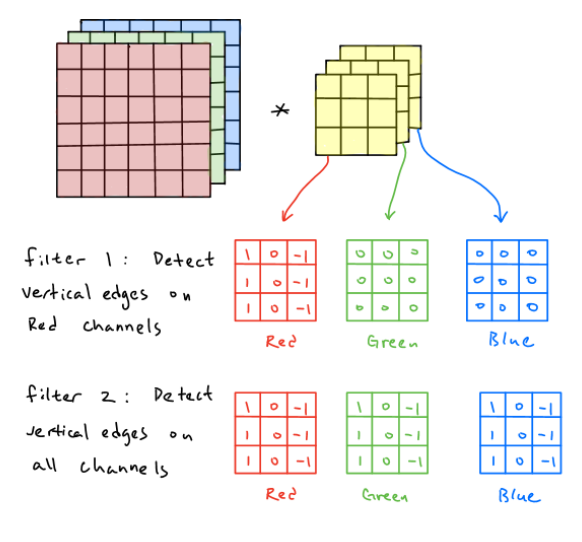 *
filter 1: Detect
vertical edges on
Red channels
1 0 -1
1 0 -1
1 0 -1
Red
0 0 0
0 0 0
0 0 0
Green
0 0 0
0 0 0
0 0 0
Blue
filter 2: Detect
vertical edges on
all channels
1 0 -1
1 0 -1
1 0 -1
Red
1 0 -1
1 0 -1
1 0 -1
Green
1 0 -1
1 0 -1
1 0 -1
Blue